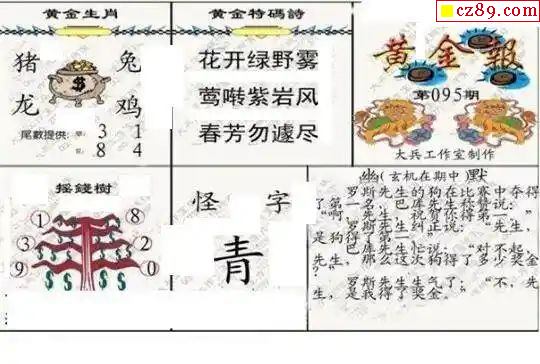 cz89.com
黄金生肖
猪 兔
龙 鸡
尾數提供: 單: 3 1
8 4
黄金特碼詩
花开绿野雾
莺啭紫岩风
春芳勿遽尽
黄金報
第095期
大兵工作室制作
摇錢樹
1 8
3 2
9 0
怪 字
青
幽(玄机在期中)默
罗斯先生的狗在比赛中夺得
了第一名,巴库先生称赞说:
"啊,先生,祝贺你得第一。"
罗斯先生纠正说:"先生,
是狗得了第一。"
巴库先生忙说:"对不起,
先生,那么这次狗得了多少奖金
?"
罗斯先生生气了:"不,先
生,是我得了奖金。"